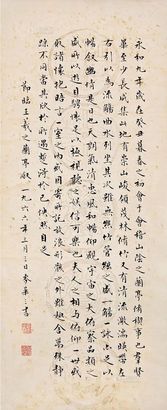 永和九年歲在癸丑暮春之初會于會稽山陰之蘭亭修禊事也羣賢
畢至少長咸集此地有崇山峻領茂林脩竹又有清流激湍暎帶左
右引以為流觴曲水列坐其次雖無絲竹管絃之盛一觴一詠亦足以
暢敘幽情是日也天朗氣清惠風和暢仰觀宇宙之大俯察品類之
盛所以遊目騁懷足以極視聽之娛信可樂也夫人之相與俯仰一世或
取諸懷抱晤言一室之內或因寄所託放浪形骸之外雖趣舍萬殊靜
躁不同當其欣於所遇暫得於己快然自足
節臨王羲之蘭亭敘一九六六年三月三日書